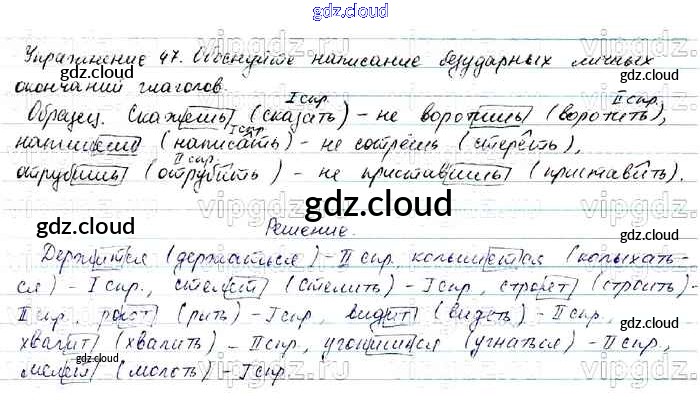 gdz.cloud
Упражнение 47. Обоснуйте написание безударных личных
gdz.cloud
окончаний глаголов.
I спр. II спр.
Образец. Скажешь (сказать) – не воротишь (воротить),
I спр.
напишешь (написать) – не сотрёшь (стереть),
II спр.
отрубишь (отрубить) – не приставишь (приставить).
gdz.cloud
Решение.
Держится (держаться) – II спр., колышется (колыхать-
ся) – I спр., стелет (стелить) – I спр., строет (строить) –
II спр., роют (рыть) – I спр., видит (видеть) – II спр.,
хвалит (хвалить) – II спр., угонишься (угнаться) – II спр.,
gdz.cloud
(молоть) – I спр.